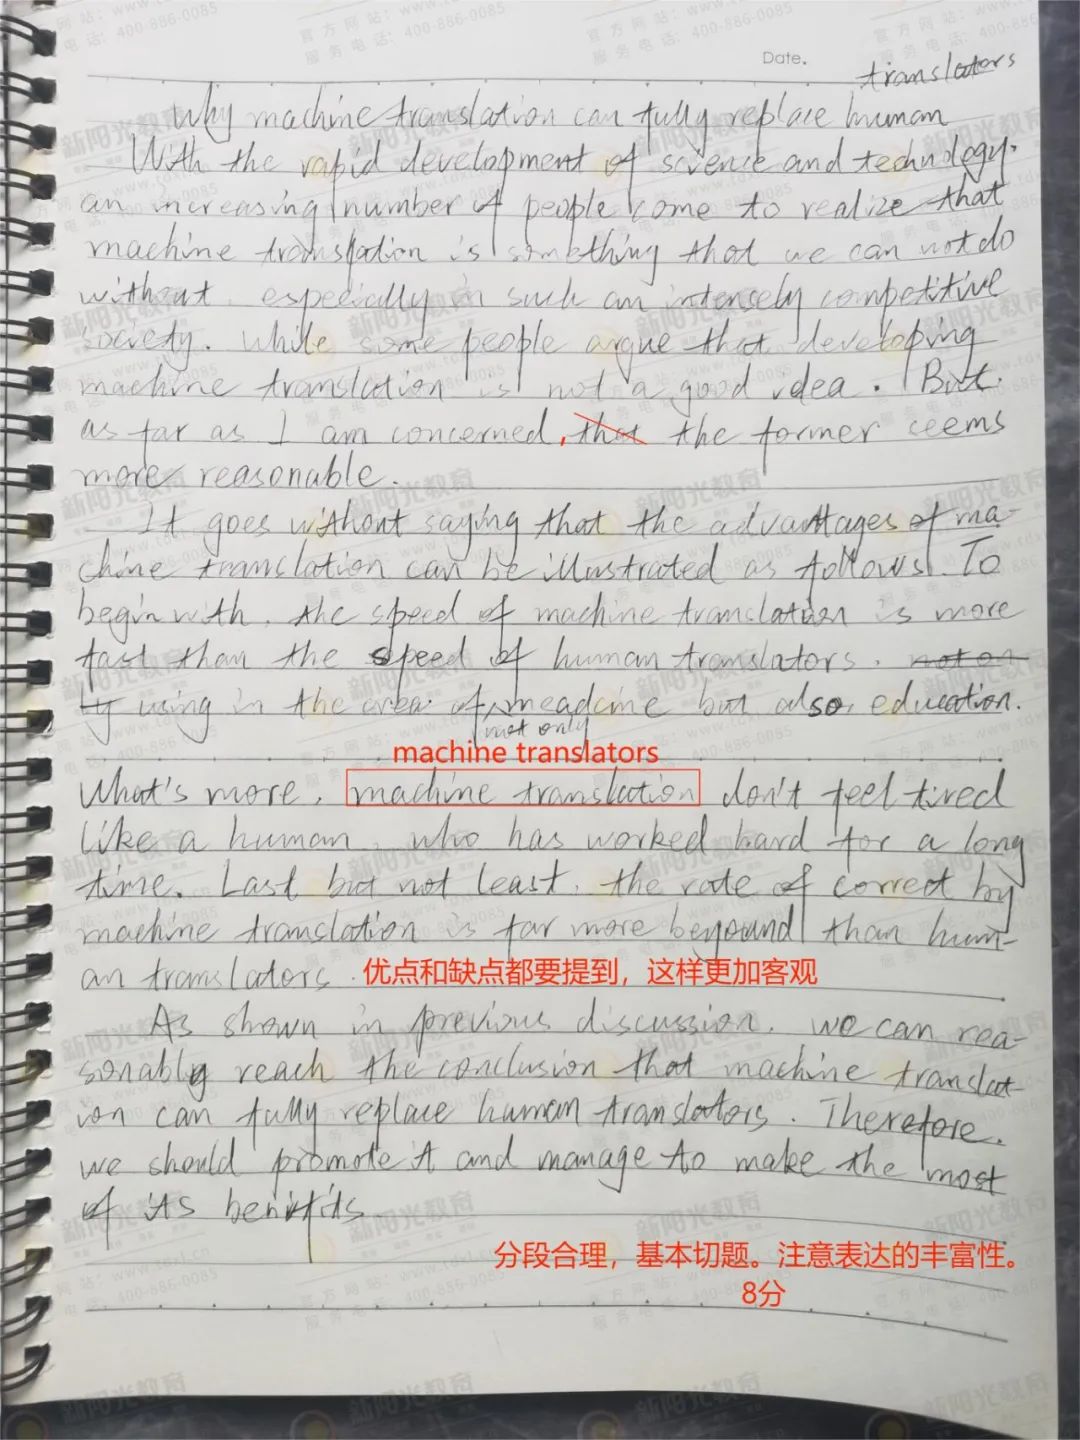 Date.
translators
Why machine translation can fully replace human
With the rapid development of science and technology.
an increasing number of people come to realize that
machine translation is something that we can not do
without. especially in such an intensely competitive
society. While some people argue that developing
machine translation is not a good idea. But.
as far as I am concerned, that the former seems
more reasonable.
It goes without saying that the advantages of ma-
chine translation can be illustrated as follows. To
begin with, the speed of machine translation is more
fast than the speed of human translators. not on
ly using in the area of meadcine but also education.
not only
machine translators
What's more, machine translation don't feel tired
like a human, who has worked hard for a long
time. Last but not least, the rate of correct by
machine translation is far more beyound than hum-
an translators.
优点和缺点都要提到，这样更加客观
As shown in previous discussion, we can rea-
sonably reach the conclusion that machine translat-
ion can fully replace human translators. Therefore.
we should promote it and manage to make the most
of its benifits.
分段合理，基本切题。注意表达的丰富性。
8分
新阳光教育
官方网站：www.tdxl.cn
服务电话：400-886-0085